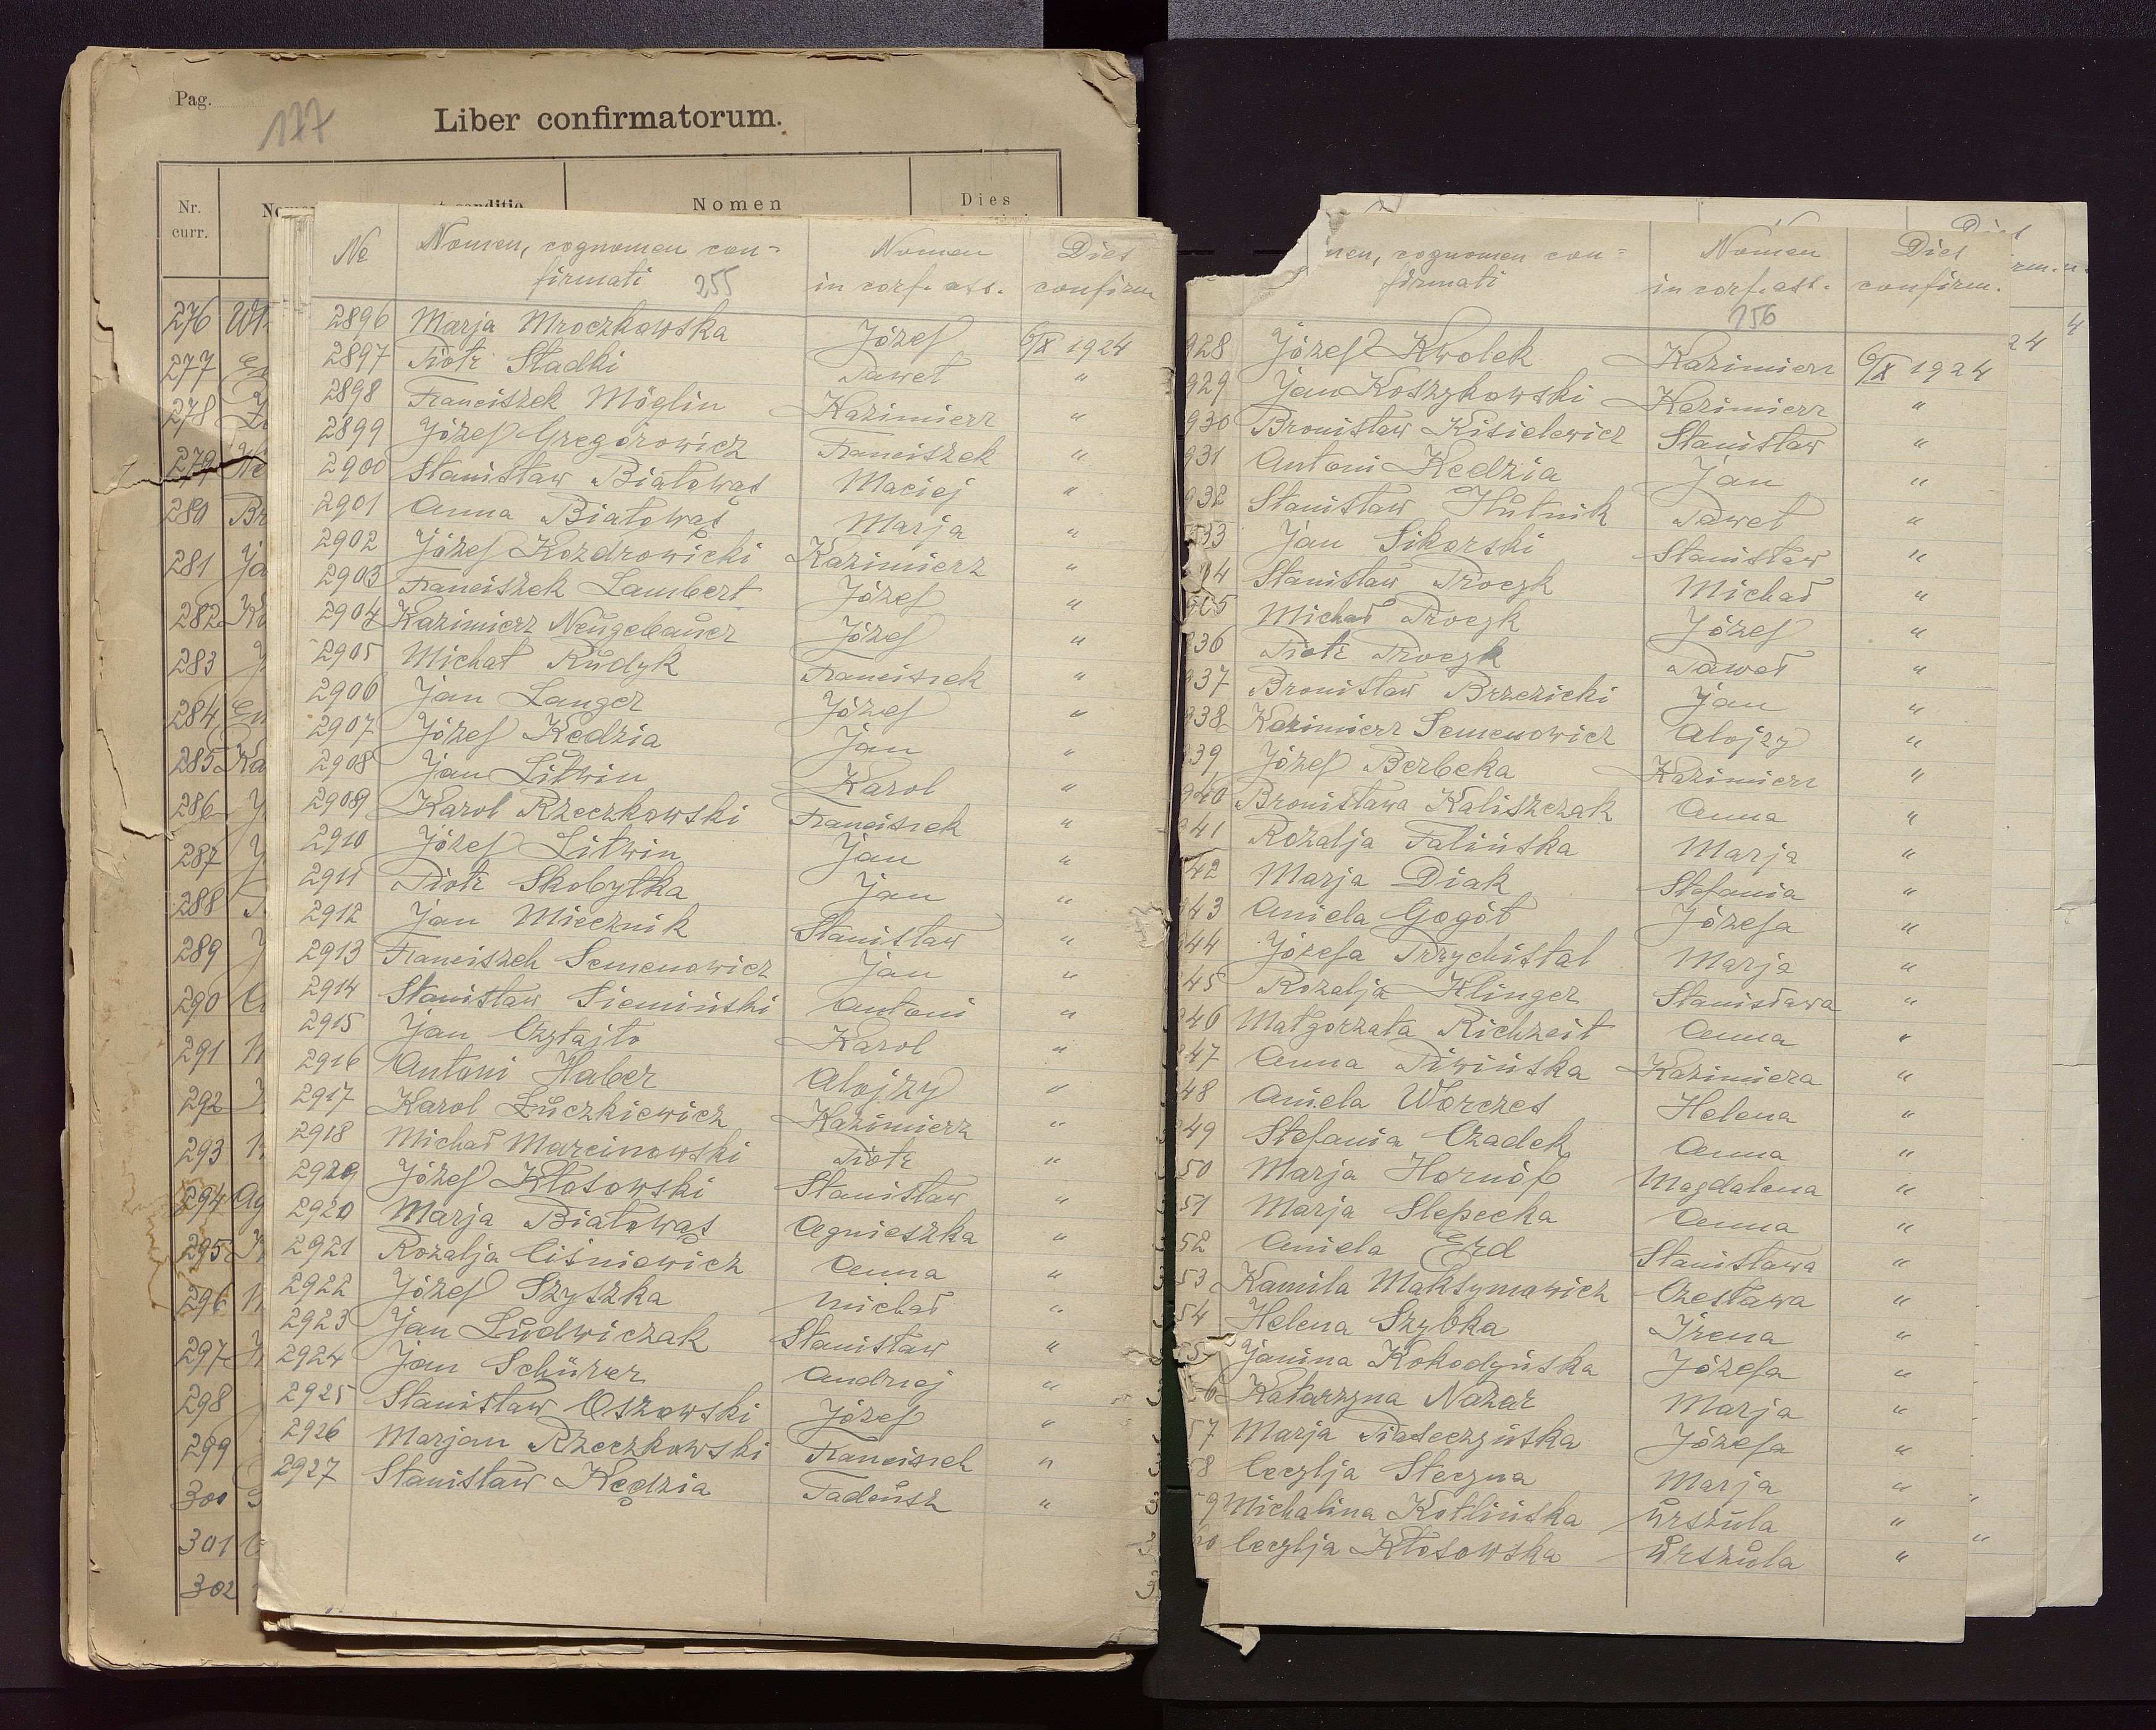 Pag.
177
Liber confirmatorum.
Nr. curr.
Nomen
Dies
276
277
278
279
280
281
282
283
284
285
286
287
288
289
290
291
292
293
294
295
296
297
298
299
300
301
302
No Nomen, cognomen con= Nomen Dies
firmati 255 in conf. ass. confirm
2896 Marja Mroczkowska Józef 6/IX 1924
2897 Piotr Sładki Paweł "
2898 Franciszek Möglin Kazimierz "
2899 Józef Gregórowicz Franciszek "
2900 Stanisław Białowąs Maciej "
2901 Anna Białowąs Marja "
2902 Józef Kozdrowicki Kazimierz "
2903 Franciszek Lambert Józef "
2904 Kazimierz Neugebauer Józef "
2905 Michał Rudyk Franciszek "
2906 Jan Langer Józef "
2907 Józef Kedzia Jan "
2908 Jan Litwin Karol "
2909 Karol Rzeczkowski Franciszek "
2910 Józef Litwin Jan "
2911 Piotr Skobyłka Jan "
2912 Jan Miecznik Stanisław "
2913 Franciszek Semenowicz Jan "
2914 Stanisław Siemiński Antoni "
2915 Jan Czytajło Karol "
2916 Antoni Haber Alojzy "
2917 Karol Łuczkiewicz Kazimierz "
2918 Michał Marcinowski Piotr "
2919 Józef Kłosowski Stanisław "
2920 Marja Białowąs Agnieszka "
2921 Rozalja Ciśniewicz Anna "
2922 Józef Szyszka Michał "
2923 Jan Ludwiczak Stanisław "
2924 Jan Schürer Andrzej "
2925 Stanisław Oszowski Józef "
2926 Marjan Rzeczkowski Franciszek "
2927 Stanisław Kędzia Tadeusz "
nen, cognomen con= Nomen Dies
firmati in conf. ass. confirm.
256
928 Józef Kwolek Kazimierz 6/IX 1924
929 Jan Koszykowski Kazimierz "
930 Bronisław Kisielewicz Stanisław "
931 Antoni Kedzia Jan "
932 Stanisław Hutnik Paweł "
933 Jan Sikorski Stanisław "
34 Stanisław Proczk Michał "
935 Michał Proczk Józef "
936 Piotr Proczk Paweł "
937 Bronisław Brzezicki Jan "
938 Kazimierz Semenowicz Alojzy "
939 Józef Berbeka Kazimierz "
940 Bronisława Kaliszczak Anna "
941 Rozalja Falińska Marja "
42 Marja Diak Stefania "
943 Aniela Gogół Józefa "
944 Józefa Przychistal Marja "
45 Rozalja Klinger Stanisława "
946 Małgorzata Richzeit Anna "
947 Anna Piwińska Kazimiera "
48 Aniela Worczes Helena "
49 Stefania Czadek Anna "
50 Marja Hornóf Magdalena "
51 Marja Slepecka Anna "
52 Aniela Erd Stanisława "
53 Kamila Maksymowicz Czesława "
54 Helena Szybka Irena "
55 Janina Kokodyńska Józefa "
56 Katarzyna Nazar Marja "
57 Marja Piaseczyńska Józefa "
58 Cecylja Steczna Marja "
59 Michalina Kotlińska Urszula "
60 Cecylja Kłosowska Urszula "